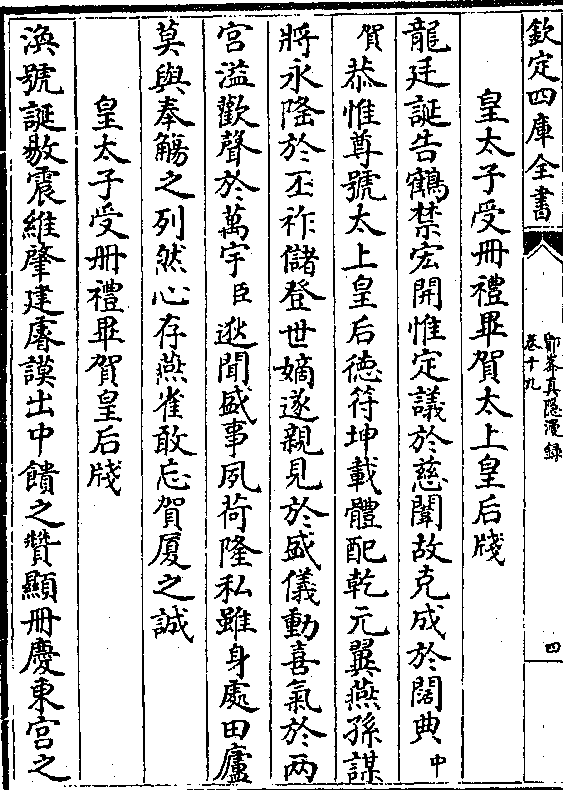 欽定四庫全書
鄮峯真隠漫録
卷十九
四
皇太子受冊禮畢賀太上皇后牋
龍廷誕告鶴禁宏開惟定議於慈闈故克成於闊典中
賀恭惟尊號太上皇后徳符坤載體配乾元翼燕孫謀
將永隆於丕祚儲登世嫡遂親見於盛儀動喜氣於兩
宮溢歡聲於萬宇臣逖聞盛事夙荷隆私雖身處田廬
莫與奉觴之列然心存燕雀敢忘賀厦之誠
皇太子受冊禮畢賀皇后牋
渙號誕敭震維肇建睿謨出中饋之贊顯冊慶東宮之